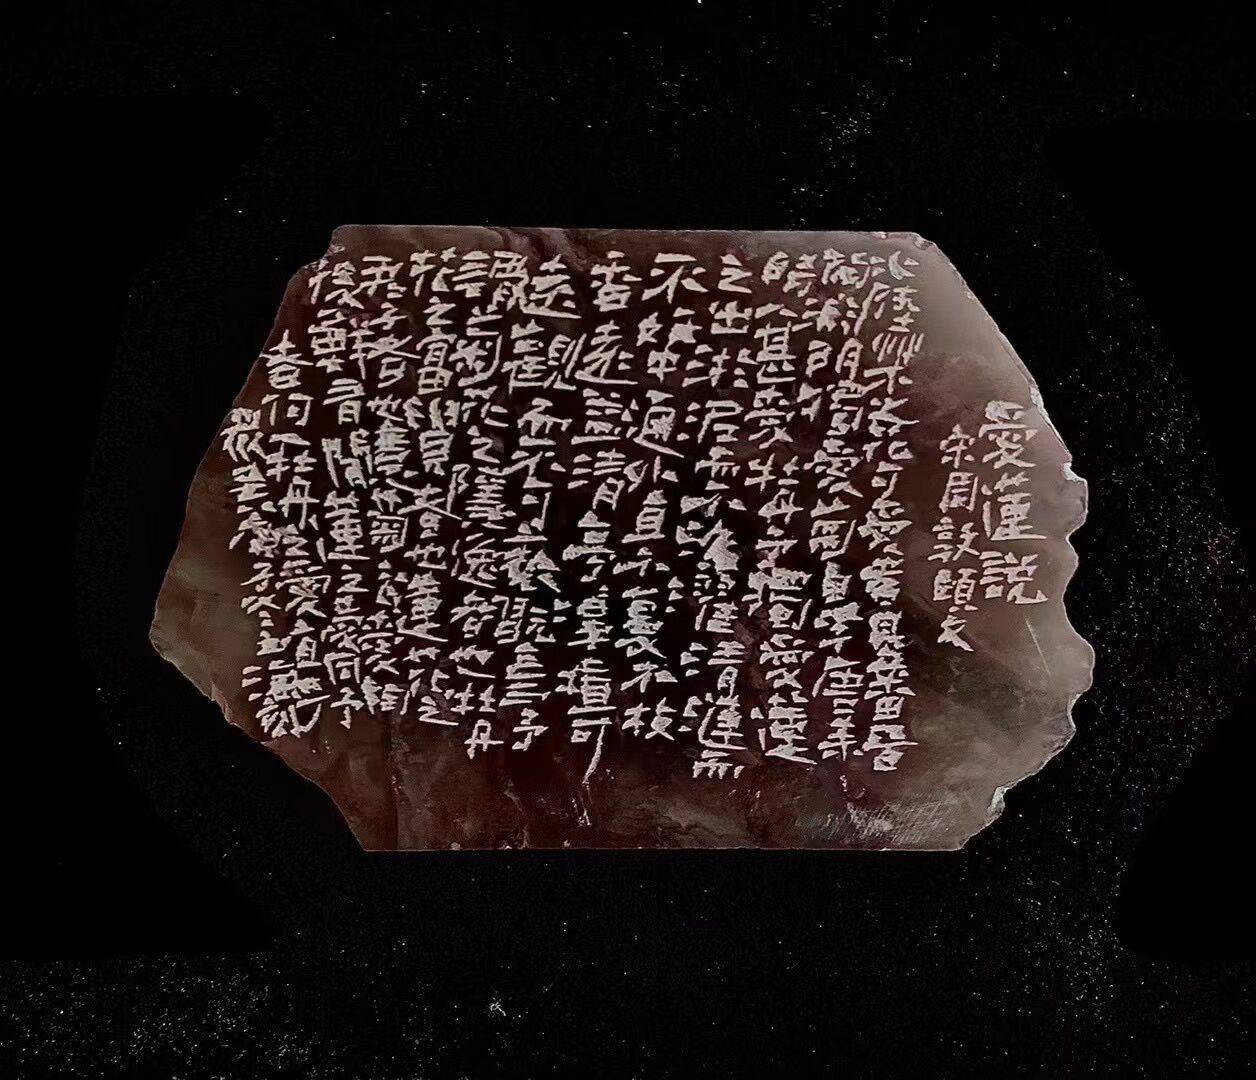 愛蓮説
宋周敦頤文
水陸艸木之花可愛者甚蕃晉
陶淵明獨愛菊自李唐来
時人甚愛牡丹予獨愛蓮
之出淤泥而不染濯清漣而
不妖中通外直不蔓不枝
香遠益清亭亭植可
遠觀而不可褻翫焉予
謂菊花之隱逸者也牡丹
花之富貴者也蓮花之
君子者也噫菊之愛陶
後鮮有聞蓮之愛同予
者何人牡丹之愛宜